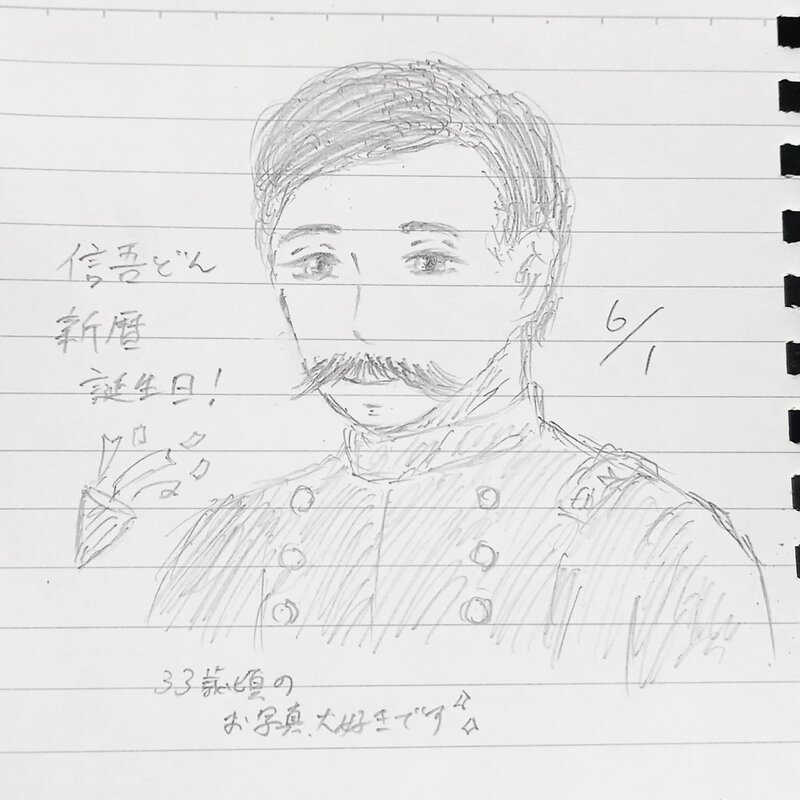 信吾どん
新暦
誕生日!
6/1
33歳頃の
お写真、大好きです